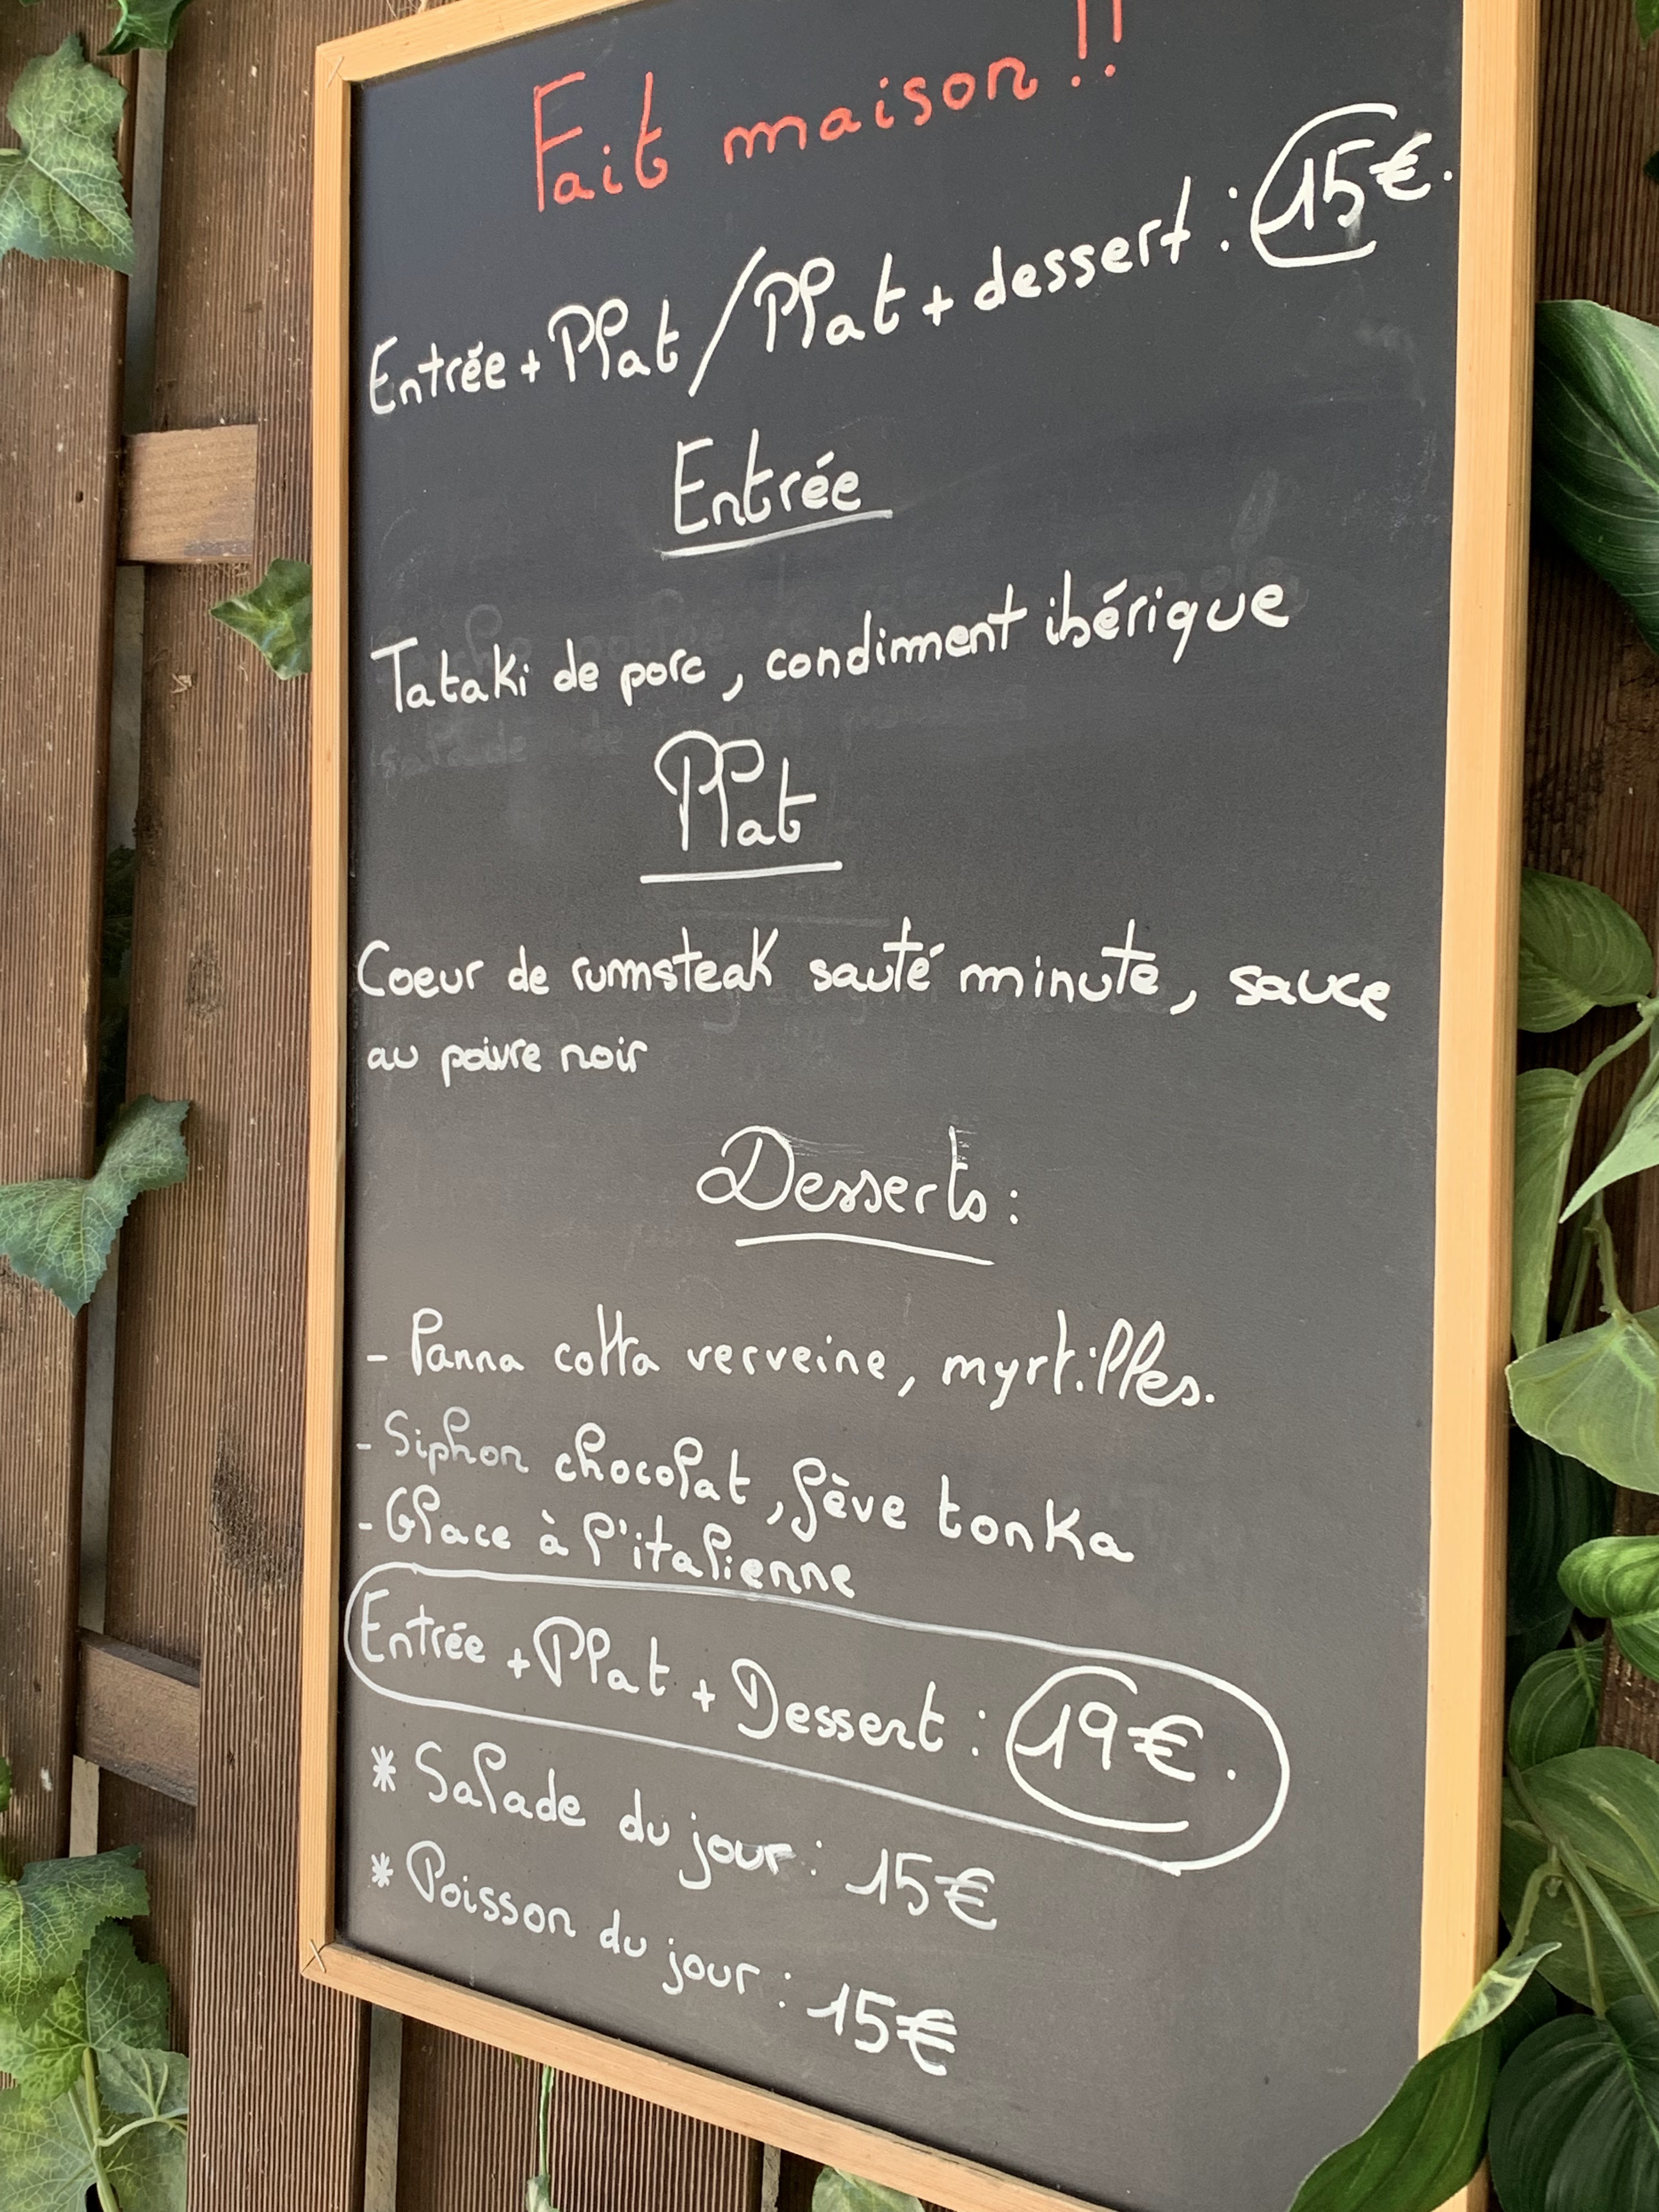 Fait maison!!
Entrée + Plat / Plat + dessert : 15€.
Entrée
Tataki de porc, condiment ibérique
Plat
Coeur de rumsteak sauté minute, sauce
au poivre noir
Desserts :
- Panna cotta verveine, myrtilles.
- Siphon chocolat, fève tonka
- Glace à l'italienne
Entrée + Plat + Dessert : 19€.
* Salade du jour : 15€
* Poisson du jour : 15€